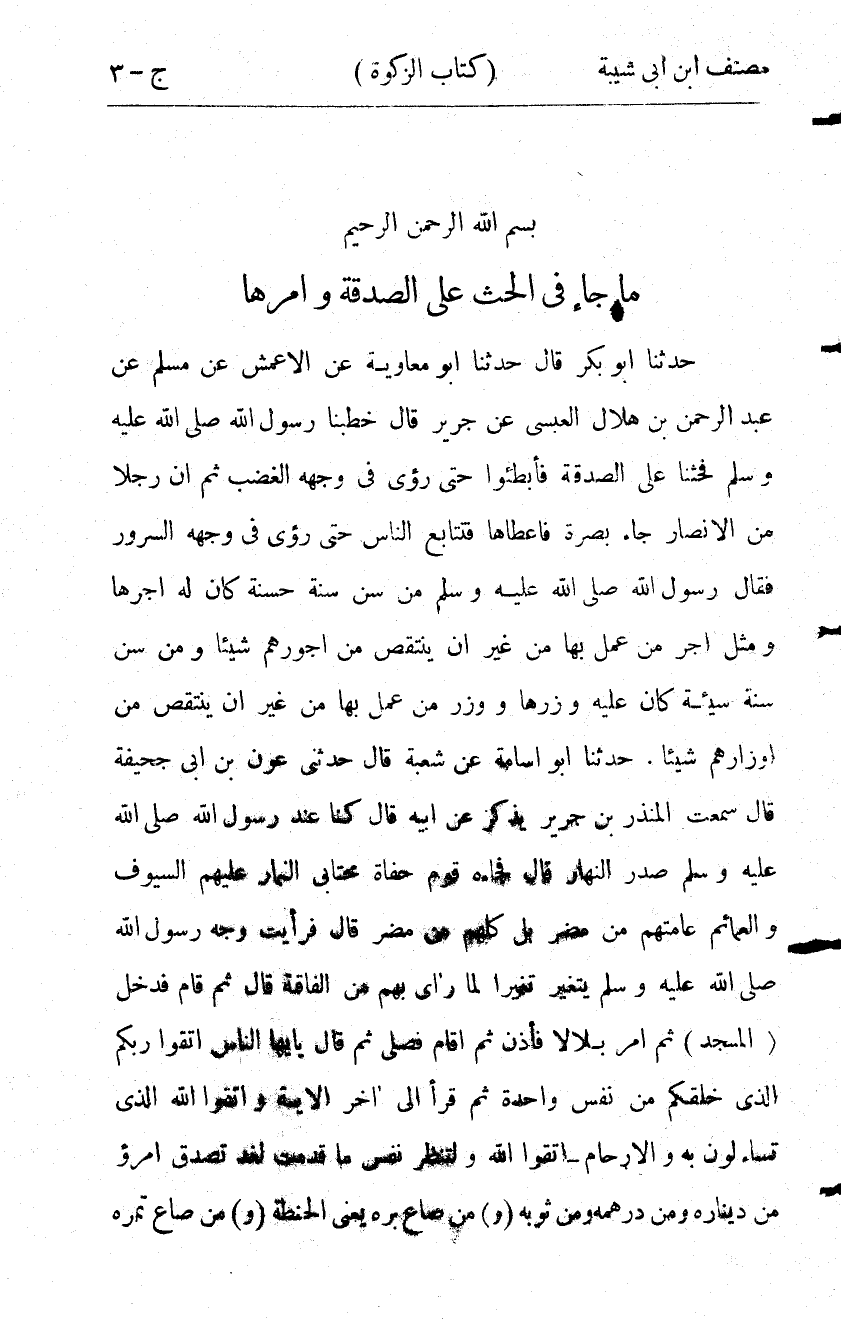 مصنف ابن ابى شيبة (كتاب الزكوة) ج - ٣
بسم الله الرحمن الرحيم
ما جاء فى الحث على الصدقة و امرها
حدثنا ابو بكر قال حدثنا ابو معاويـة عن الاعمش عن مسلم عن
عبد الرحمن بن هلال العبسى عن جرير قال خطبنا رسول الله صلى الله عليه
و سلم فحثنا على الصدقة فأبطئوا حتى رؤى فى وجهه الغضب ثم ان رجلا
من الانصار جاء بصرة فاعطاها فتتابع الناس حتى رؤى فى وجهه السرور
فقال رسول الله صلى الله عليـه و سلم من سن سنة حسنة كان له اجرها
و مثل اجر من عمل بها من غير ان ينتقص من اجورهم شيئا و من سن
سنة سيئـة كان عليه وزرها و وزر من عمل بها من غير ان ينتقص من
اوزارهم شيئا . حدثنا ابو اسامة عن شعبة قال حدثنى عون بن ابى جحيفة
قال سمعت المنذر بن جرير يذكر عن ابيه قال كنا عند رسول الله صلى الله
عليه و سلم صدر النهار قال فجاءه قوم حفاة مجتابى النمار عليهم السيوف
و العمائم عامتهم من مضر بل كلهم من مضر قال فرأيت وجه رسول الله
صلى الله عليه و سلم يتغير تغيرا لما رأى بهم من الفاقة قال ثم قام فدخل
( المسجد ) ثم امر بـلالا فأذن ثم اقام فصلى ثم قال يايها الناس اتقوا ربكم
الذى خلقكم من نفس واحدة ثم قرأ الى اخر الايـة و اتقوا الله الذى
تساءلون به و الارحام ـ اتقوا الله و لتنظر نفس ما قدمت لغد تصدق امرؤ
من ديناره ومن درهمه ومن ثوبه (و) من صاع بره يعنى الحنطة (و) من صاع تمره